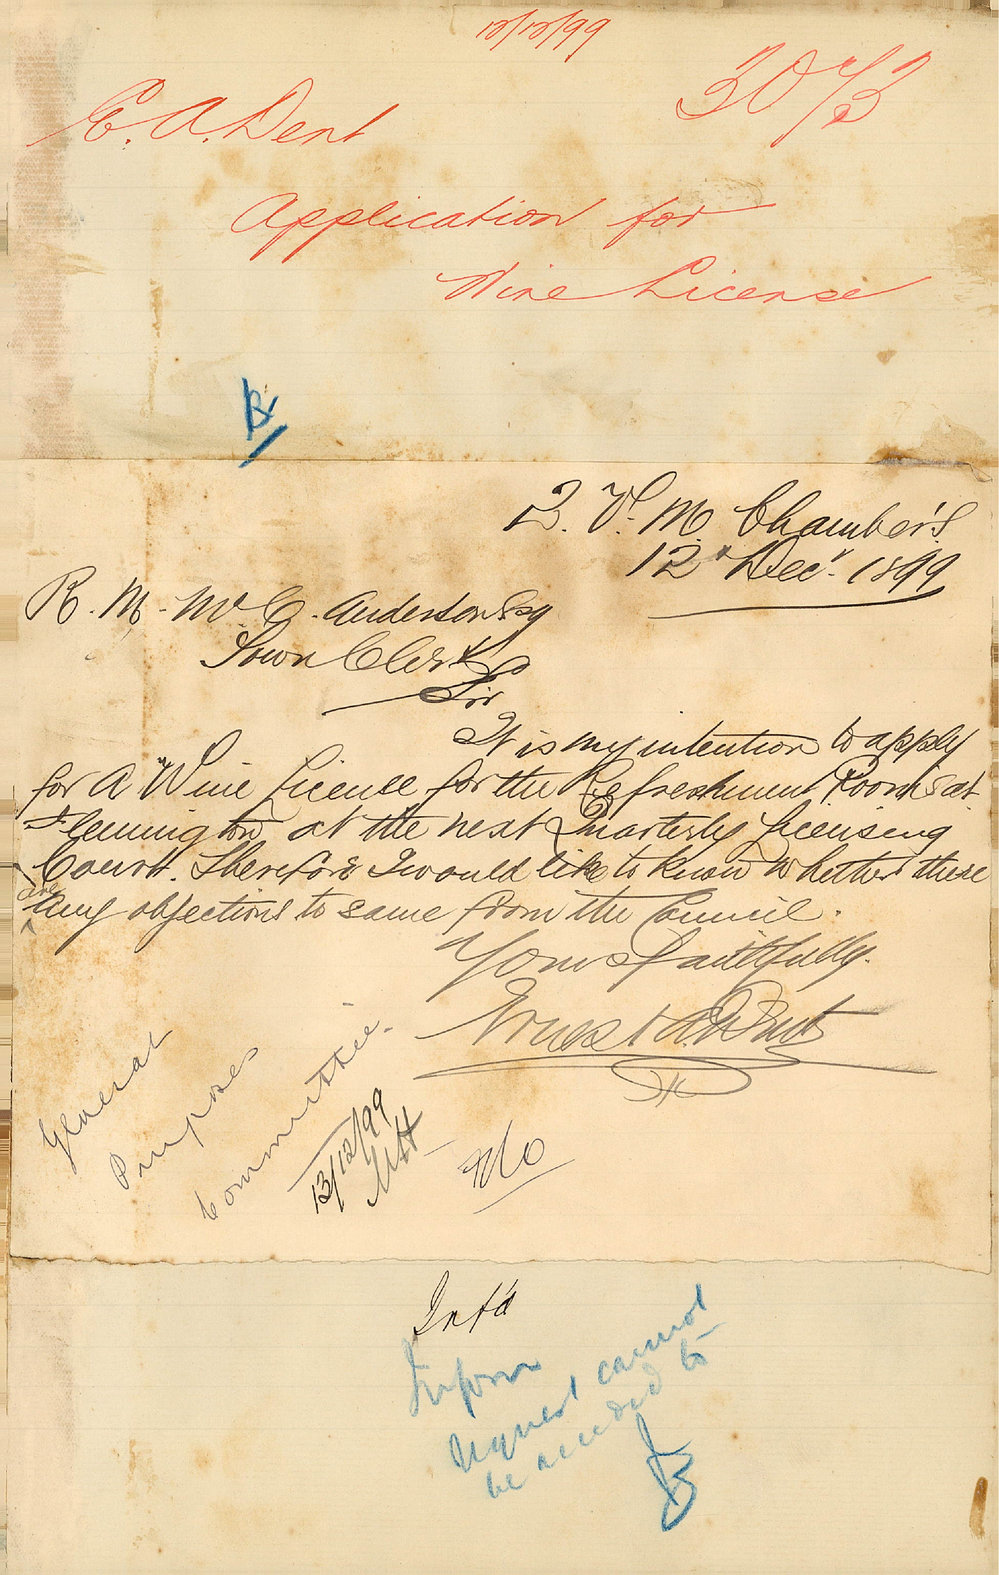 12/12/99
E. A. Dent
Application for
Wine License
2. V. M. Chambers.
12" Dec'. 1899
R. M. McC. Anderson Esq
Town Clerk
Sir
It is my intention to apply
for a "Wine License for the Refreshment Rooms at
Flemington at the next Quarterly Licensing
Court. Therefore I would like to know whether there
are
any objections to same from the Council.
Yours faithfully.
Ernest A. Dent
General
Purposes
Committee.
13/12/99
No
Inf'd
Inform
request cannot
be acceded to